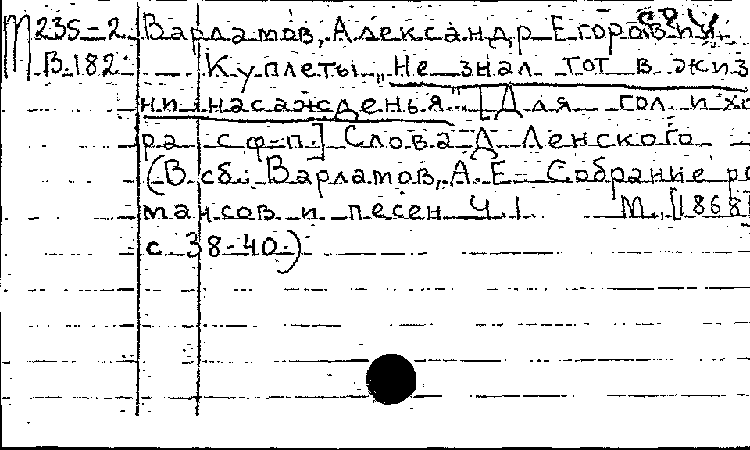 М235-2 Варламов, Александр Егорович.
В.182 Куплеты „Не знал тот в жиз
ни насажденья" [Для гол. и хо
ра с ф-п.] Слова Д Ленского
(В сб.: Варламов, А. Е. Собрание ро
мансов и песен Ч. 1 М. [1868]
с. 38-40.)